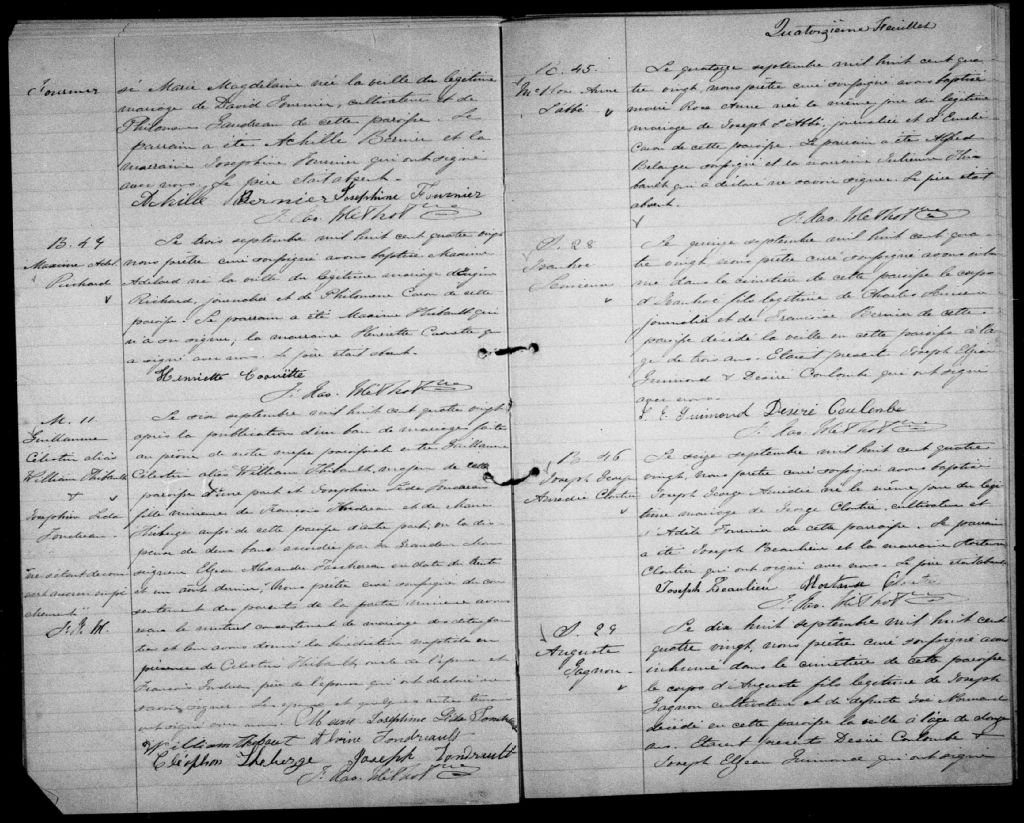 Fournier
si Marie Magdelaine née la veille du légitime
mariage de David Fournier, cultivateur et de
Philomene Gaudreau de cette paroisse. Le
parrain a été Achille Bernier et la
marraine Josephine Fournier qui ont signé
avec nous. Le père était absent.
Achille Bernier Josephine Fournier
F. Xav. Méthot Ptre
B. 49
Maxime Adél.
Richard
Le trois septembre mil huit cent quatre vingt
nous prêtre curé soussigné avons baptisé Maxime
Adélard né la veille du légitime mariage
Richard, journalier et de Philomene Caron de cette
paroisse. Le parrain a été Maxime Thibault qui
n'a su signer, la marraine Henriette Caouette qui
a signé avec nous. Le père était absent.
Henriette Caouëtte
F. Xav. Méthot Ptre
M. 11
Guillaume
Célestin alias
William Thibault
+
Josephine Léda
Gendreau
Le six septembre mil huit cent quatre vingt
après la publication d'un ban de mariage faite
au prône de notre messe paroissiale entre Guillaume
Célestin alias William Thibault, majeur de cette
paroisse d'une part et Josephine Léda Gendreau
fille mineure de François Gendreau et de Marie
Théberge aussi de cette paroisse d'autre part, vu la dis
pense de deux bans accordée par sa Grandeur Mon
seigneur Elzear Alexandre Taschereau en date du trente
et un août dernier, "Nous prêtre curé soussigné du con
sentement des parents de la partie mineure avons
reçu le mutuel consentement de mariage des dites par
ties et leur avons donné la bénédiction nuptiale en
présence de Célestin Thibault, oncle de l'époux et
François Gendreau père de l'épouse qui ont déclaré ne
savoir signer. Les époux et quelques autres témoins
ont signé avec nous. Marie Josephine Léda Gendreau
"ne s'étant décou
vert aucun empê
chement"
F. X. M.
William Thibaut Alvine Gendreault
Cléophas Theberge Joseph Gendreault
F. Xav. Méthot Ptre
Quatorzième Feuillet
B. 45.
M. Rose Anne
L'abbé
Le quatorze septembre mil huit cent qua
tre vingt, nous prêtre curé soussigné avons baptisé
Marie Rose Anne née le même jour du légitime
mariage de Joseph L'Abbé, journalier et d'
Caron de cette paroisse. Le parrain a été Alfred
Belanger soussigné et la marraine Julienne Thi
bault qui a déclaré ne savoir signer. Le père était
absent.
F. Xav. Méthot Ptre
S. 28
Ivanhoé
Le quinze septembre mil huit cent qua
tre vingt, nous prêtre curé soussigné avons inhu
mé dans le cimetière de cette paroisse le corps
d'Ivanhoé fils légitime de Charles
journalier et de Francoise Bernier de cette
paroisse décédé la veille en cette paroisse à l'â
ge de trois ans. Etaient présent Joseph Elzéar
Guimond & Désiré Coulombe qui ont signé
avec nous.
J. E. Guimond Desiré Coulombe
F. Xav. Méthot Ptre
B. 46
Joseph George
Amédée Cloutier
Le seize septembre mil huit cent quatre
vingt, nous prêtre curé soussigné avons baptisé
Joseph George Amédée né le même jour du légi
time mariage de George Cloutier, cultivateur et
d'Adèle Fournier de cette paroisse. Le parrain
a été Joseph Beaulieu et la marraine Hortense
Cloutier qui ont signé avec nous. Le père était absent.
Joseph Beaulieu Hortense Cloutier
F. Xav. Méthot Ptre
S. 29
Auguste
Gagnon
Le dix huit septembre mil huit cent
quatre vingt, nous prêtre curé soussigné avons
inhumé dans le cimetière de cette paroisse
le corps d'Auguste fils légitime de Joseph
Gagnon cultivateur et de défunte Normand
décédé en cette paroisse la veille à l'âge de douze
ans. Etaient présent Désiré Coulombe &
Joseph Elzear Guimond qui ont signé